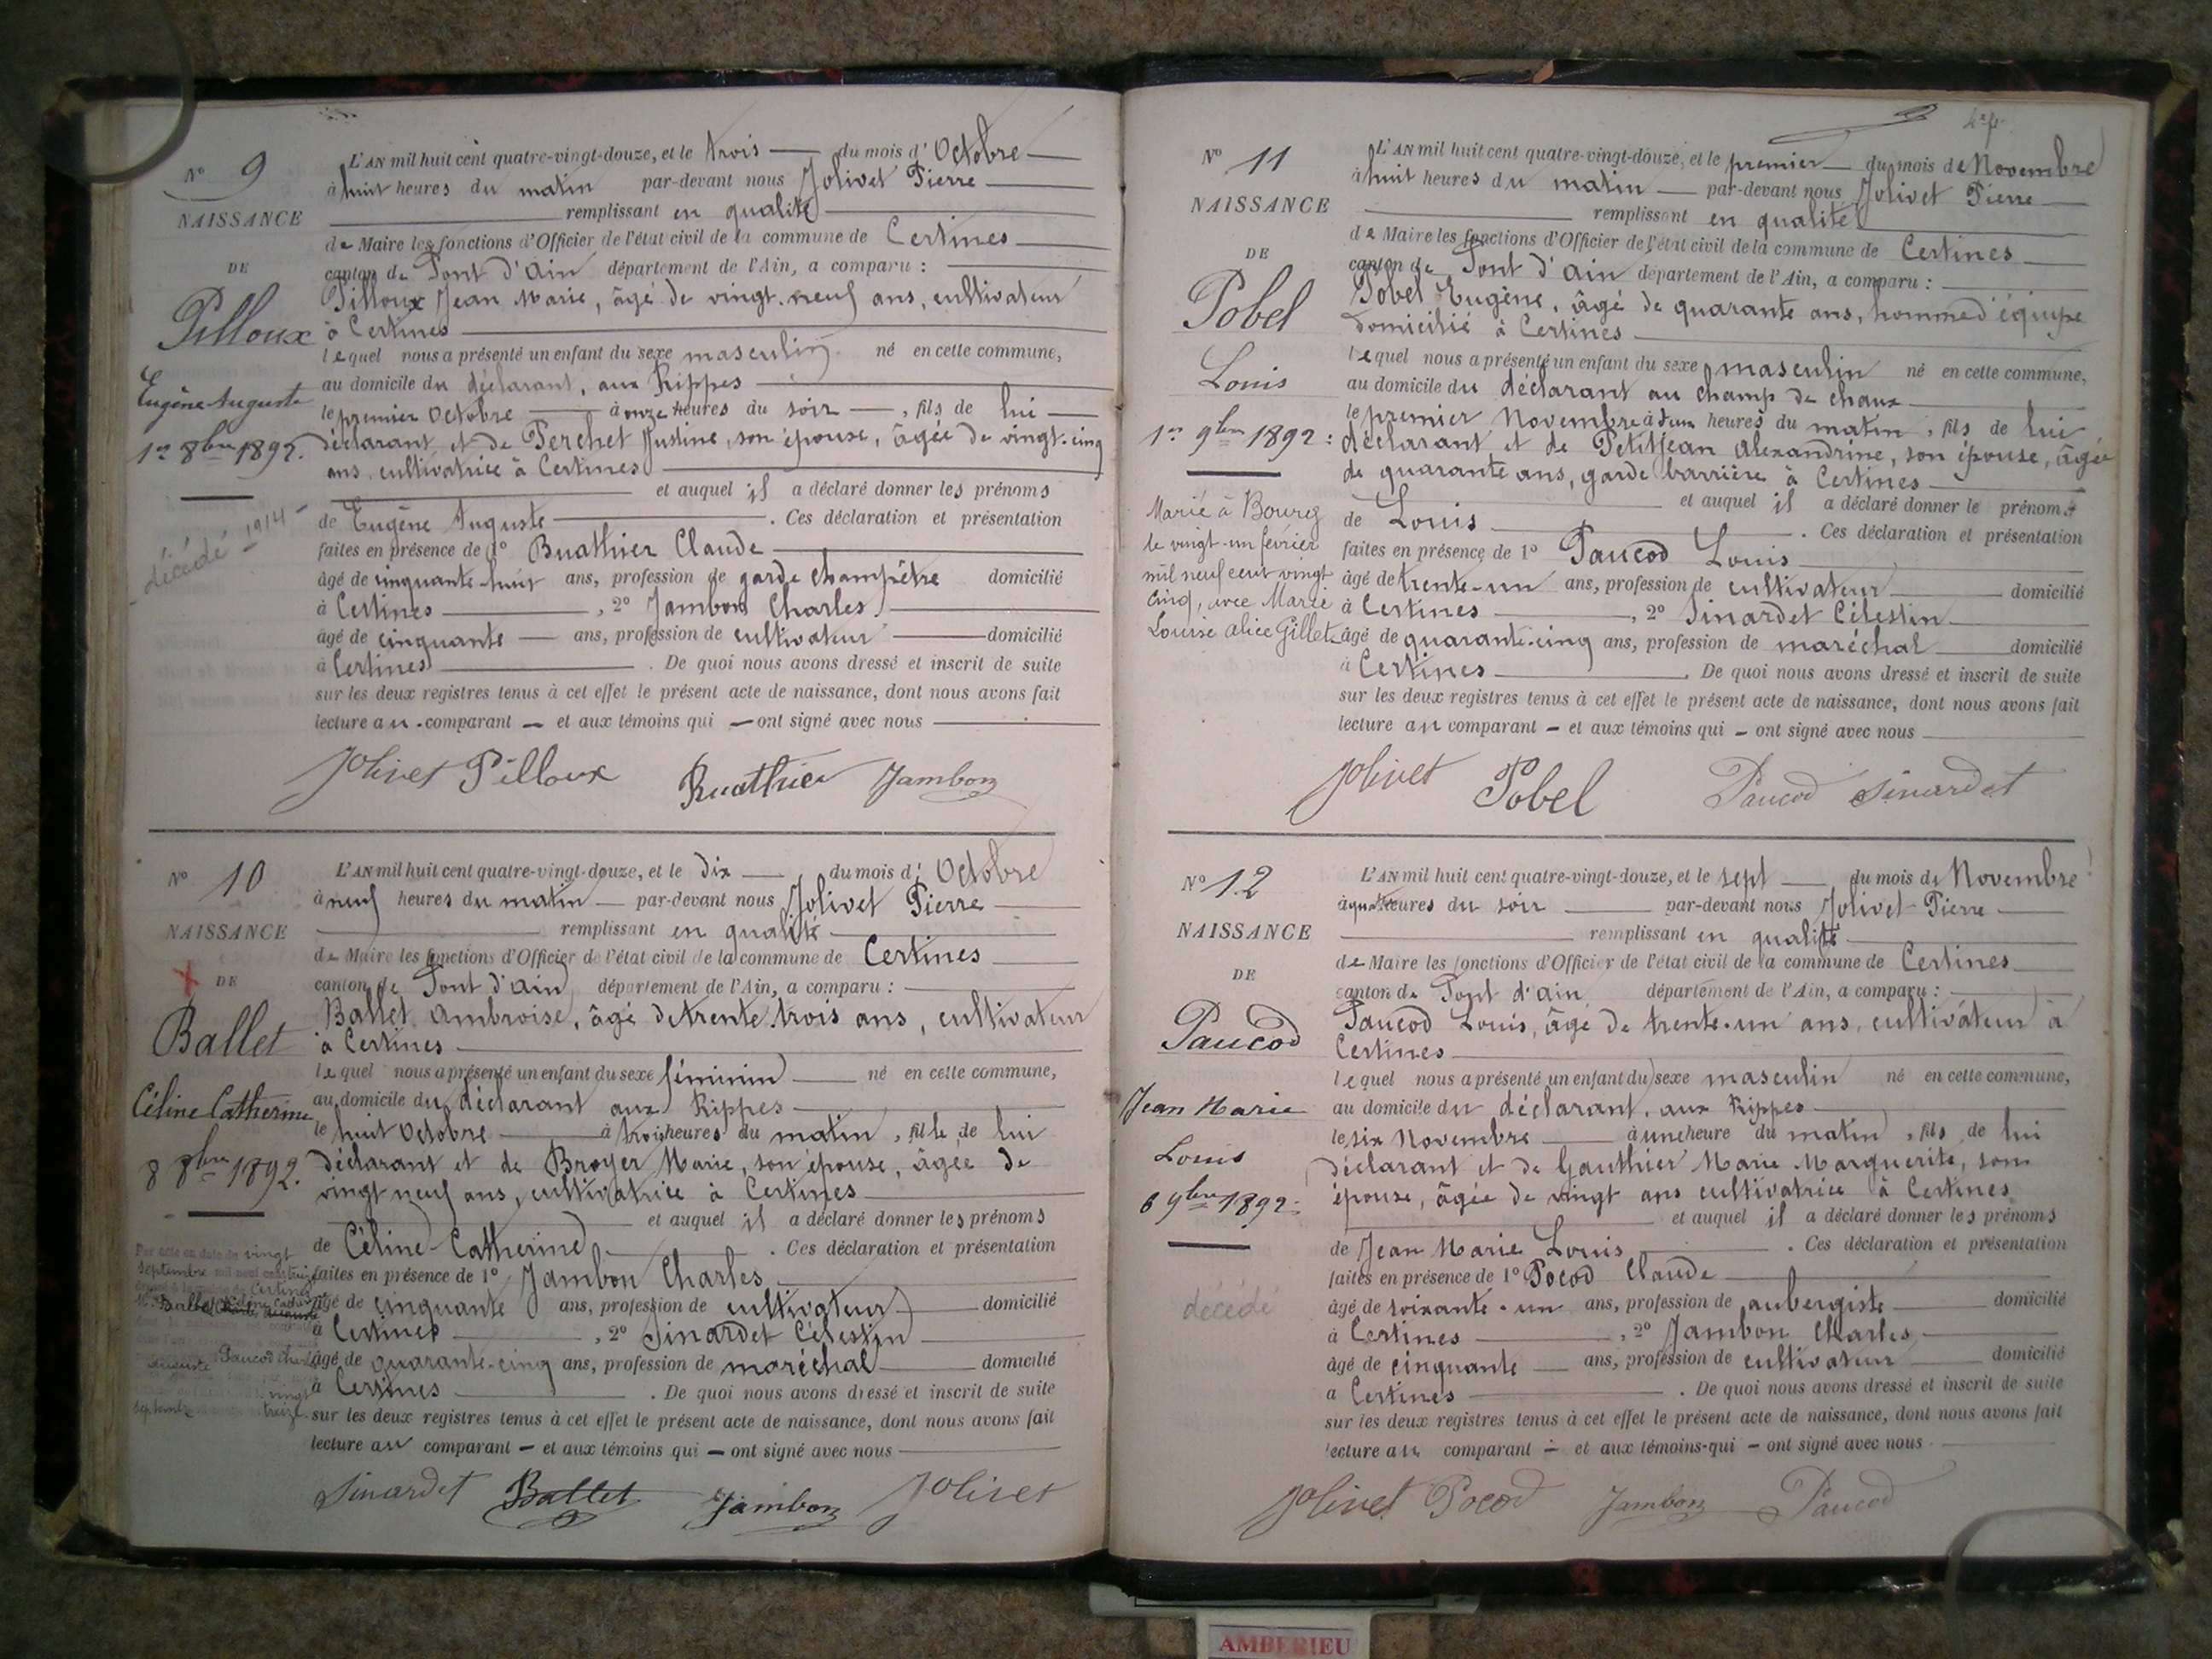 N° 9
NAISSANCE
DE
Pilloux
Eugène Auguste
1er 8bre 1892.
décédé 1914
L'AN mil huit cent quatre-vingt-douze, et le trois du mois d'Octobre
à huit heures du matin par-devant nous Jolivet Pierre
remplissant en qualité
de Maire les fonctions d'Officier de l'état civil de la commune de Certines
canton de Pont d'Ain département de l'Ain, a comparu :
Pilloux Jean Marie, âgé de vingt-neuf ans, cultivateur
à Certines
lequel nous a présenté un enfant du sexe masculin né en cette commune,
au domicile du déclarant, aux Rippes
le premier Octobre à onze heures du soir, fils de lui
déclarant et de Perchet Justine, son épouse, âgée de vingt-cinq
ans, cultivatrice à Certines
et auquel il a déclaré donner les prénoms
de Eugène Auguste. Ces déclaration et présentation
faites en présence de 1° Buathier Claude
âgé de cinquante-huit ans, profession de garde champêtre domicilié
à Certines, 2° Jambon Charles
âgé de cinquante ans, profession de cultivateur domicilié
à Certines. De quoi nous avons dressé et inscrit de suite
sur les deux registres tenus à cet effet le présent acte de naissance, dont nous avons fait
lecture au comparant et aux témoins qui ont signé avec nous
Jolivet Pilloux Buathier Jambon
N° 10
NAISSANCE
DE
Ballet
Céline Catherine
8 8bre 1892.
vingt
septembre
Certines
Ballet
Paucod
vingt
septembre treize
L'AN mil huit cent quatre-vingt-douze, et le dix du mois d'Octobre
à neuf heures du matin par-devant nous Jolivet Pierre
remplissant en qualité
de Maire les fonctions d'Officier de l'état civil de la commune de Certines
canton de Pont d'Ain département de l'Ain, a comparu :
Ballet Ambroise, âgé de trente-trois ans, cultivateur
à Certines
lequel nous a présenté un enfant du sexe féminin né en cette commune,
au domicile du déclarant aux Rippes
le huit Octobre à trois heures du matin, fille de lui
déclarant et de Broyer Marie, son épouse, âgée de
vingt neuf ans, cultivatrice à Certines
et auquel il a déclaré donner les prénoms
de Céline Catherine. Ces déclaration et présentation
faites en présence de 1° Jambon Charles
âgé de cinquante ans, profession de cultivateur domicilié
à Certines, 2° Sinardet Célestin
âgé de quarante-cinq ans, profession de maréchal domicilié
à Certines. De quoi nous avons dressé et inscrit de suite
sur les deux registres tenus à cet effet le présent acte de naissance, dont nous avons fait
lecture au comparant et aux témoins qui ont signé avec nous
Sinardet Ballet Jambon Jolivet
N° 11
NAISSANCE
DE
Pobel
Louis
1er 9bre 1892:
Marié à Bourg
le vingt-un février
mil neuf cent vingt
cinq, avec Marie
Louise Alice Gillet
L'AN mil huit cent quatre-vingt-douze, et le premier du mois de Novembre
à huit heures du matin par-devant nous Jolivet Pierre
remplissant en qualité
de Maire les fonctions d'Officier de l'état civil de la commune de Certines
canton de Pont d'Ain département de l'Ain, a comparu :
Pobel Eugène, âgé de quarante ans, homme d'équipe
domicilié à Certines
lequel nous a présenté un enfant du sexe masculin né en cette commune,
au domicile du déclarant au champ de chaux
le premier Novembre à deux heures du matin, fils de lui
déclarant et de Petitjean Alexandrine, son épouse, âgée
de quarante ans, garde barrière à Certines
et auquel il a déclaré donner le prénom
de Louis. Ces déclaration et présentation
faites en présence de 1° Paucod Louis
âgé de trente-un ans, profession de cultivateur domicilié
à Certines, 2° Sinardet Célestin
âgé de quarante-cinq ans, profession de maréchal domicilié
à Certines. De quoi nous avons dressé et inscrit de suite
sur les deux registres tenus à cet effet le présent acte de naissance, dont nous avons fait
lecture au comparant et aux témoins qui ont signé avec nous
Jolivet Pobel Paucod Sinardet
N° 12
NAISSANCE
DE
Paucod
Jean Marie
Louis
6 9bre 1892:
décédé
L'AN mil huit cent quatre-vingt-douze, et le sept du mois de Novembre
à quatre heures du soir par-devant nous Jolivet Pierre
remplissant en qualité
de Maire les fonctions d'Officier de l'état civil de la commune de Certines
canton de Pont d'Ain département de l'Ain, a comparu :
Paucod Louis, âgé de trente-un ans, cultivateur à
Certines
lequel nous a présenté un enfant du sexe masculin né en cette commune,
au domicile du déclarant, aux Rippes
le six Novembre à une heure du matin, fils de lui
déclarant et de Gauthier Marie Marguerite, son
épouse, âgée de vingt ans cultivatrice à Certines
et auquel il a déclaré donner les prénoms
de Jean Marie Louis. Ces déclaration et présentation
faites en présence de 1° Pocod Claude
âgé de soixante-un ans, profession de aubergiste domicilié
à Certines, 2° Jambon Charles
âgé de cinquante ans, profession de cultivateur domicilié
à Certines. De quoi nous avons dressé et inscrit de suite
sur les deux registres tenus à cet effet le présent acte de naissance, dont nous avons fait
lecture au comparant et aux témoins qui ont signé avec nous
Jolivet Pocod Jambon Paucod
AMBERIEU